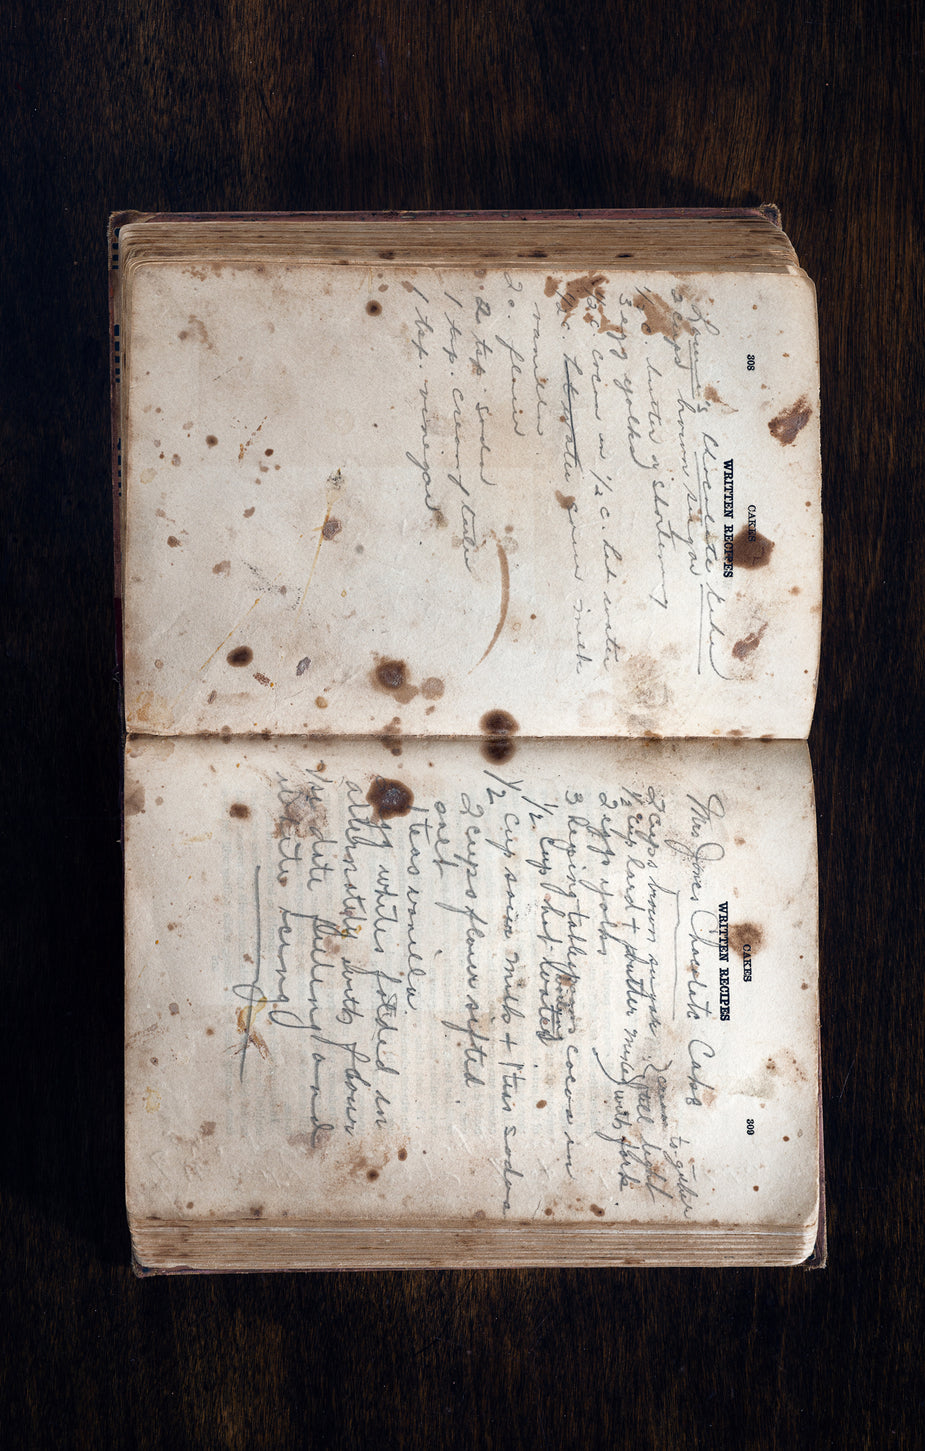 308
CAKES
WRITTEN RECIPES
chocolate cake
2 cups brown sugar
1/2 c butter or shortening
3 egg yolks
1/2 c cocoa in 1/2 c. hot water
1/2 c. milk
vanilla
2 c. flour
2 tsp soda
1 tsp. cream of tartar
1 tsp. vinegar.
CAKES
309
WRITTEN RECIPES
Mrs Jones Chocolate Cake
2 cups brown sugar cream together
1/2 cup lard + butter mixed till light
2 eggs yolks with fork
3 heping tablespoons cocoa in
1/2 cup hot water
1/2 cup sour milk + 1 teas sodas
2 cups flour sifted
once
1 teas vanilla
egg whites folded in
alternately with flour
Use date filling and
white icing